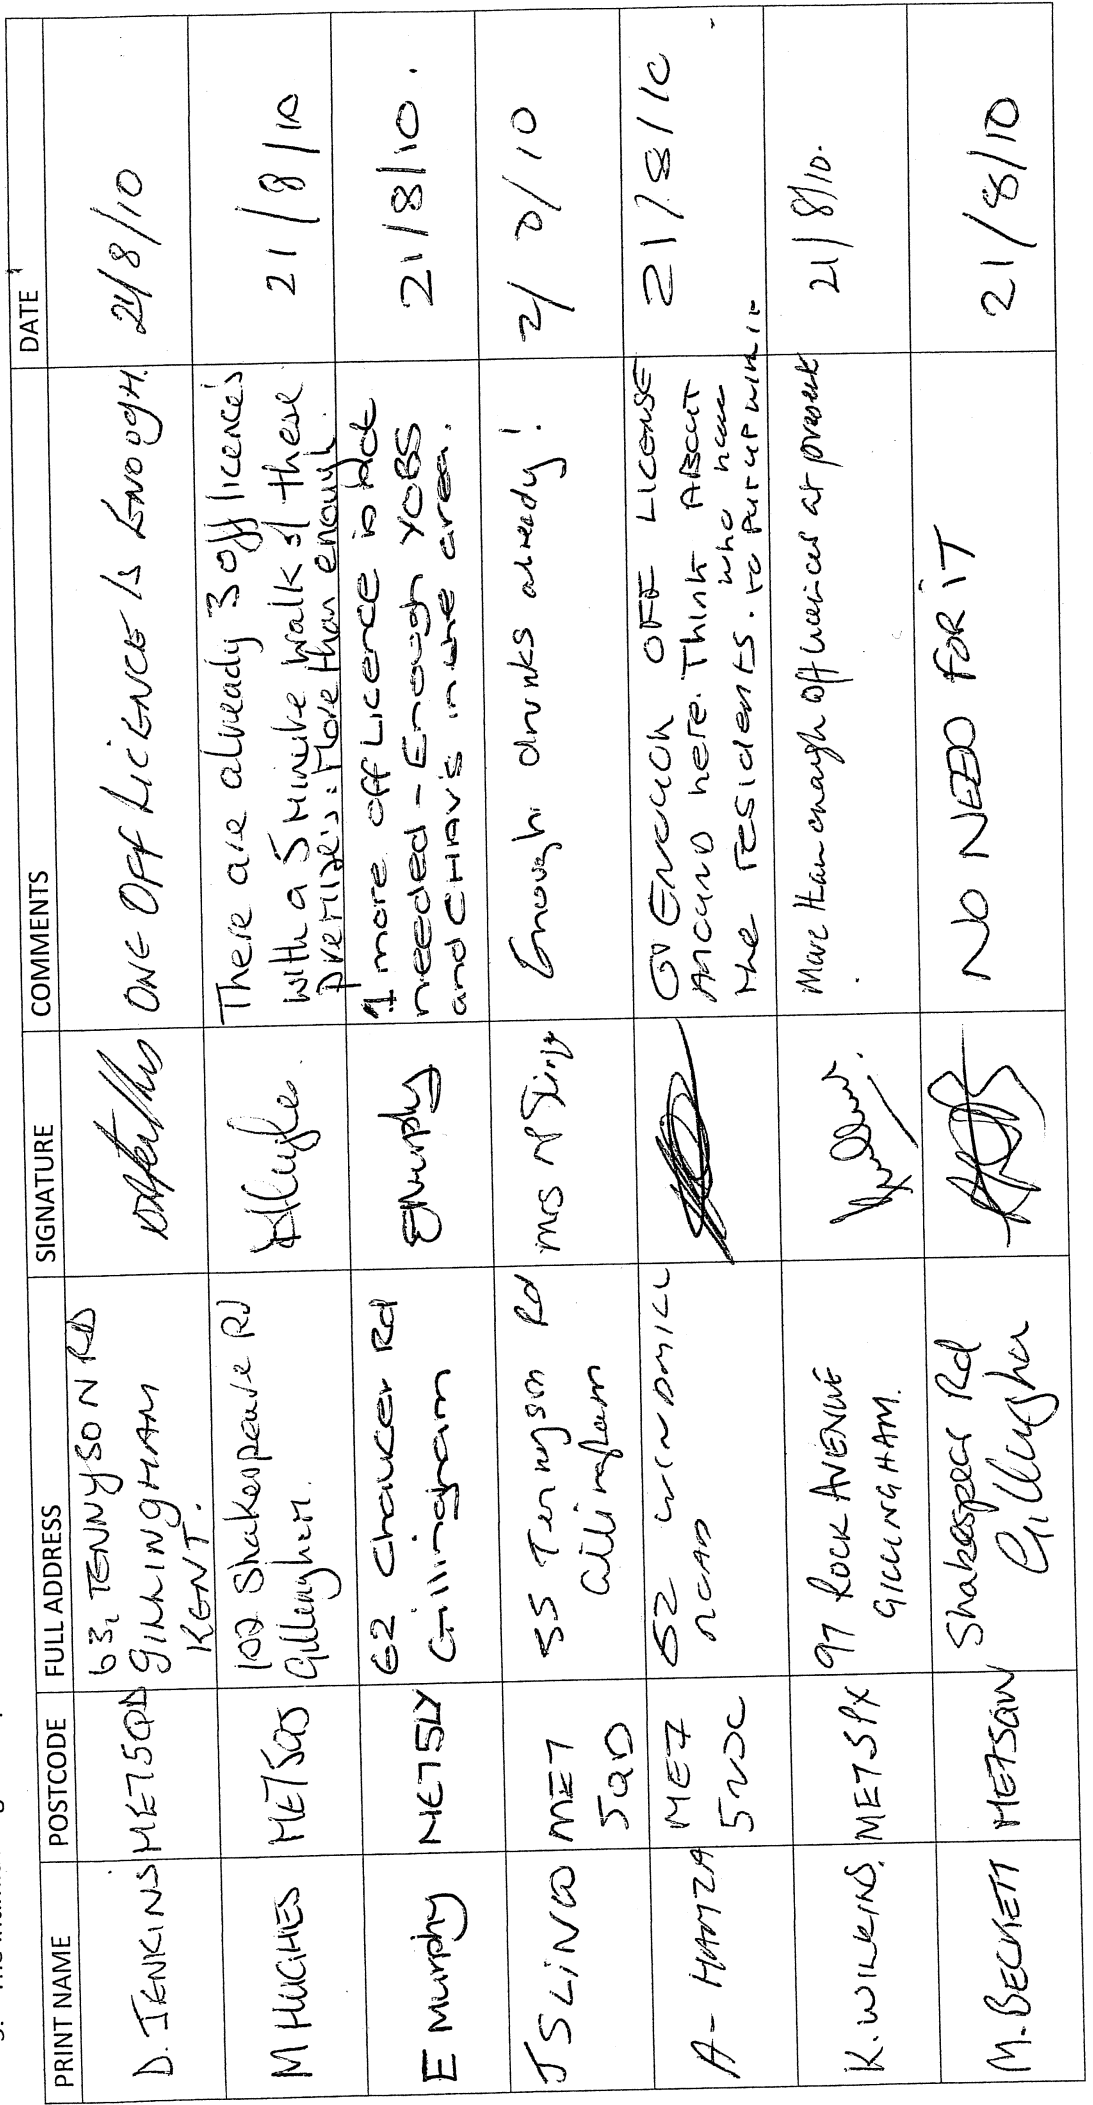 PRINT NAME POSTCODE FULL ADDRESS SIGNATURE COMMENTS DATE
D. JENKINS ME75QD 63, TENNYSON RD
GILLINGHAM
KENT.
ONE OFF LICENCE IS ENOUGH. 21/8/10
M HUGHES ME75QS 102 Shakespeare Rd
Gillingham.
MHughes.
There are already 3 off licence's
with a 5 Minute walk of these
premize's. More than enough.
21/8/10
E Murphy ME75LY 62 Chaucer Rd
Gillingham
EMurphy
1 more off Licence is Not
needed - Enough YOBS
and CHAV'S in the area.
21/8/10.
J SLINGO ME7
5QD
55 Tennyson Rd
Gillingham
Mrs
Enough drunks already!
2/ /10
A - HAMZA ME7
62 WINDMILL
ROAD
ENOUGH OFF LICENSE
AROUND here. Think ABOUT
the residents. who have
to PUT UP WITH IT
21/8/10
K. WILKINS. ME75PX 97 ROCK AVENUE
GILLINGHAM.
More than enough off licences at present
.
21/8/10.
M. BECKETT ME75QW Shakespear Rd
Gillingham
NO NEED FOR iT
21/8/10